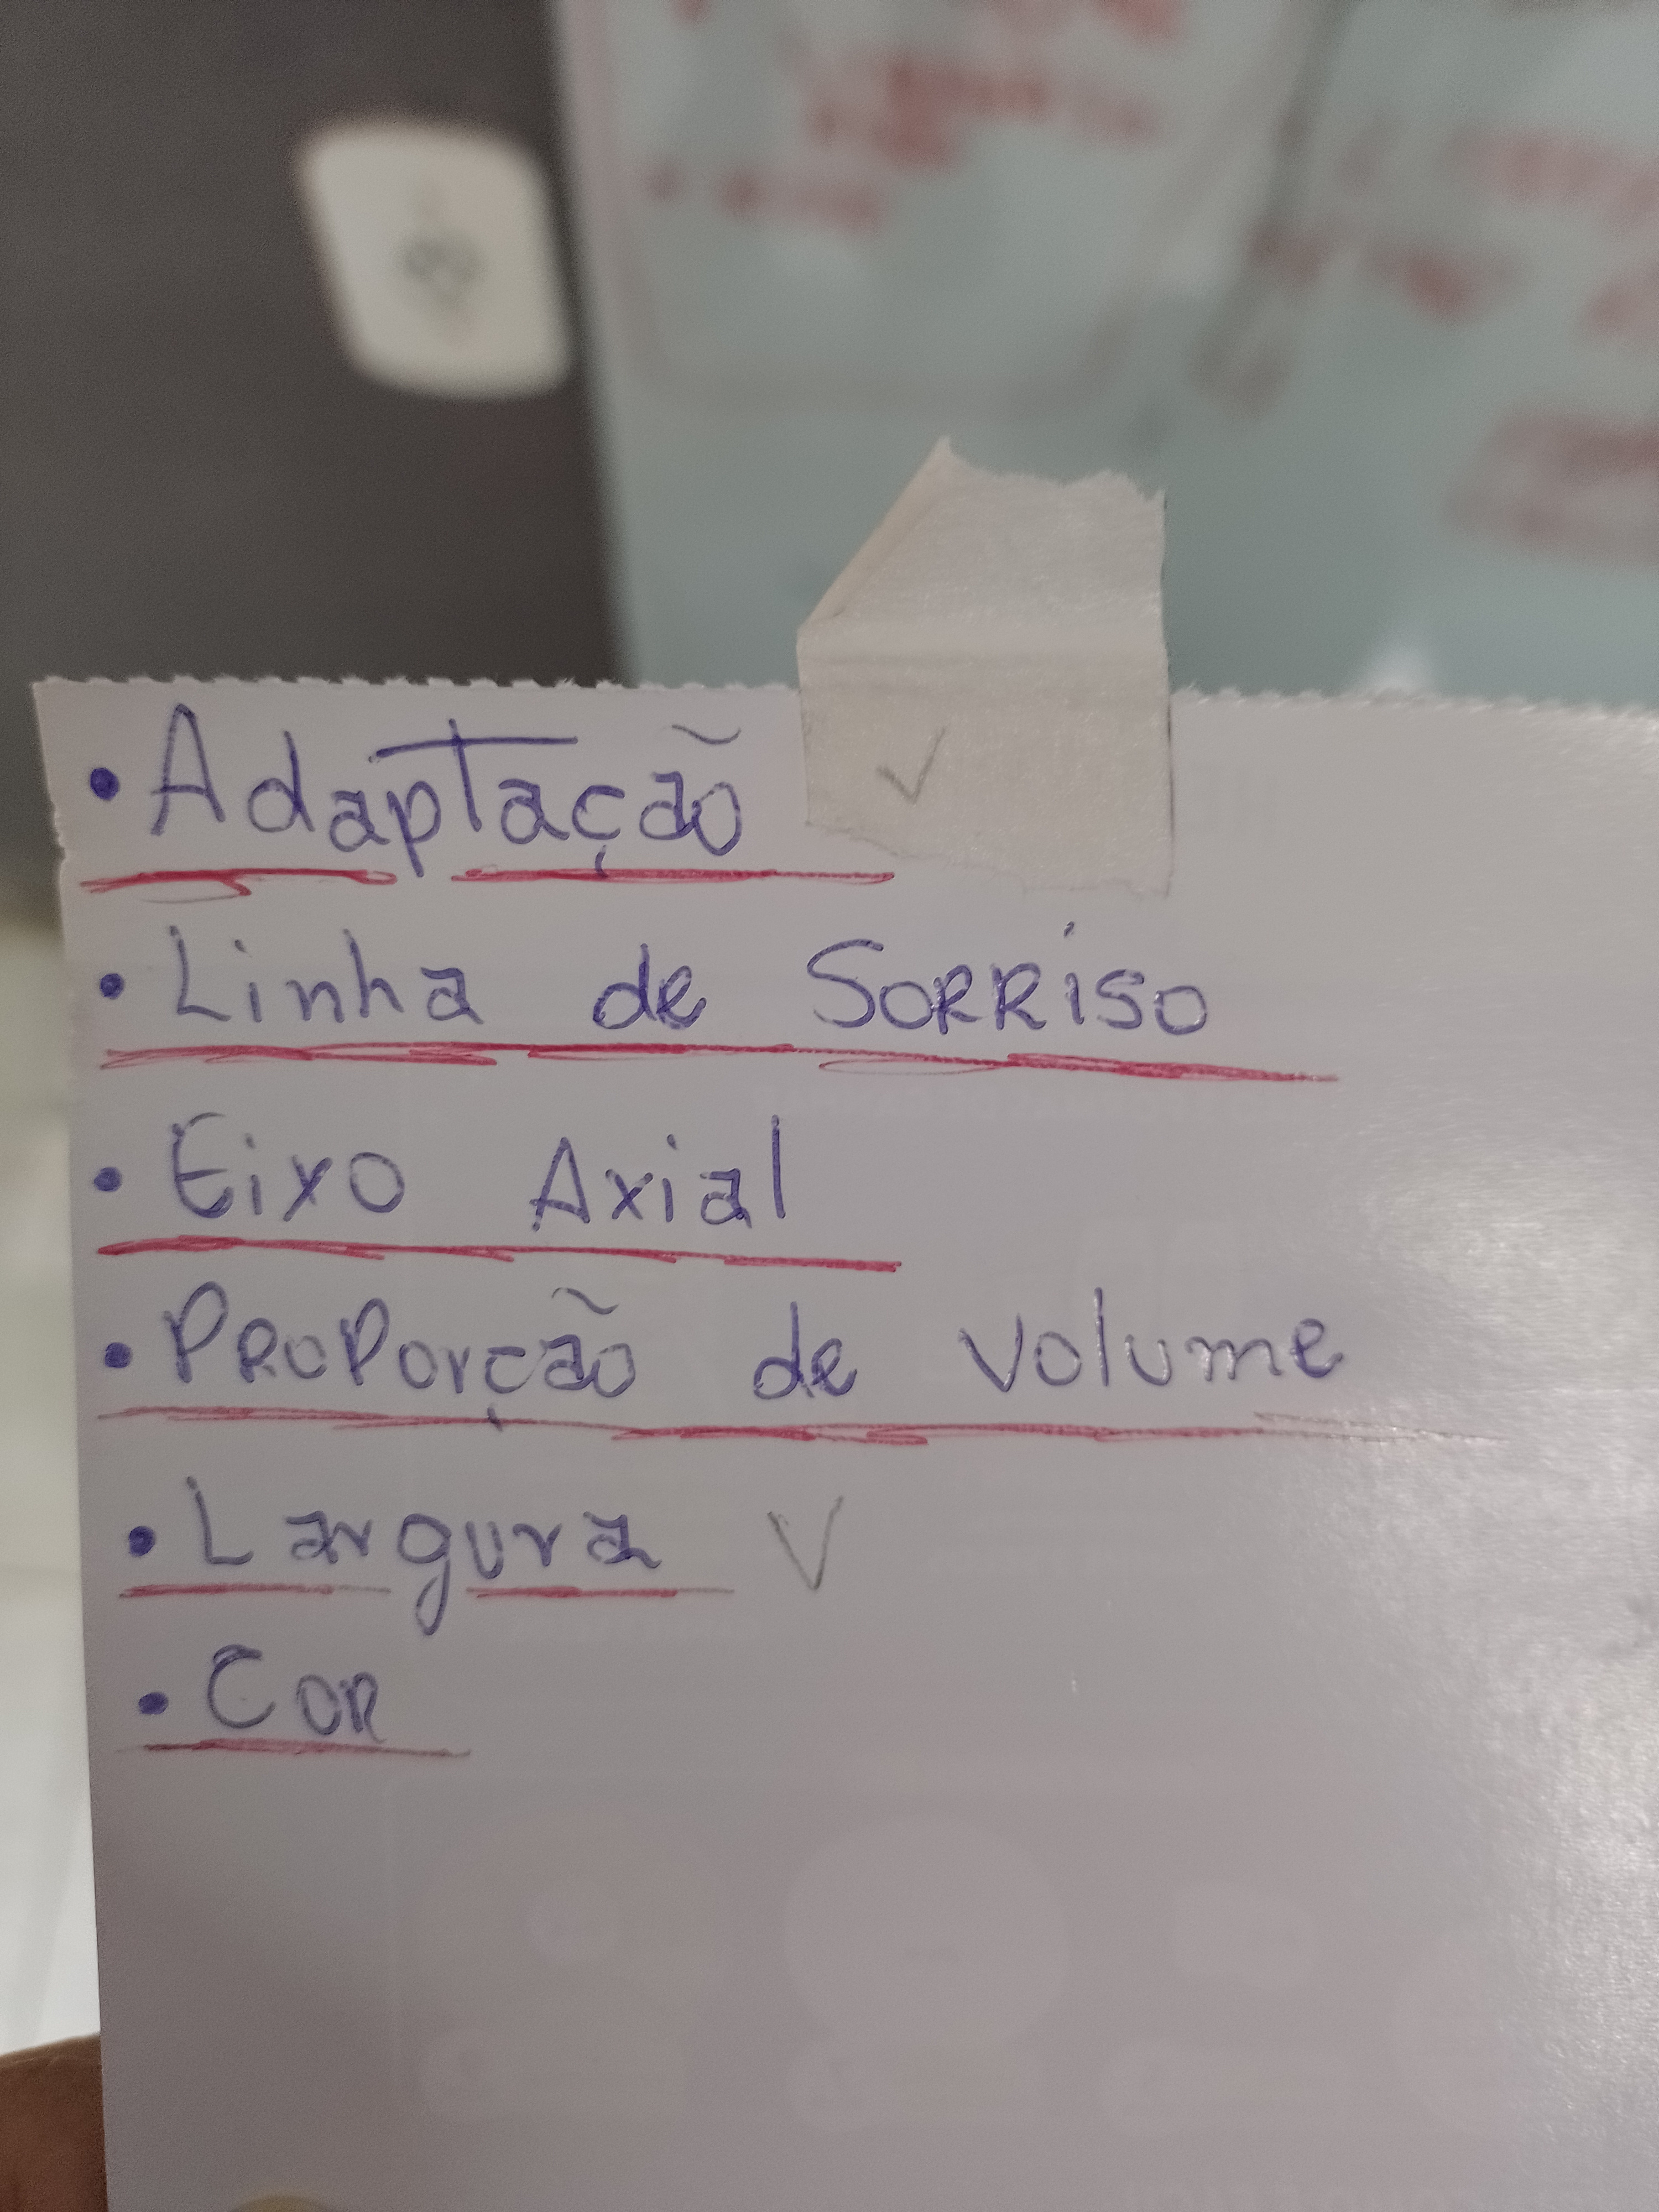 • Adaptação ✓
• Linha de SORRiso
• Eixo Axial
• PROPorção de volume
• Largura ✓
• COR